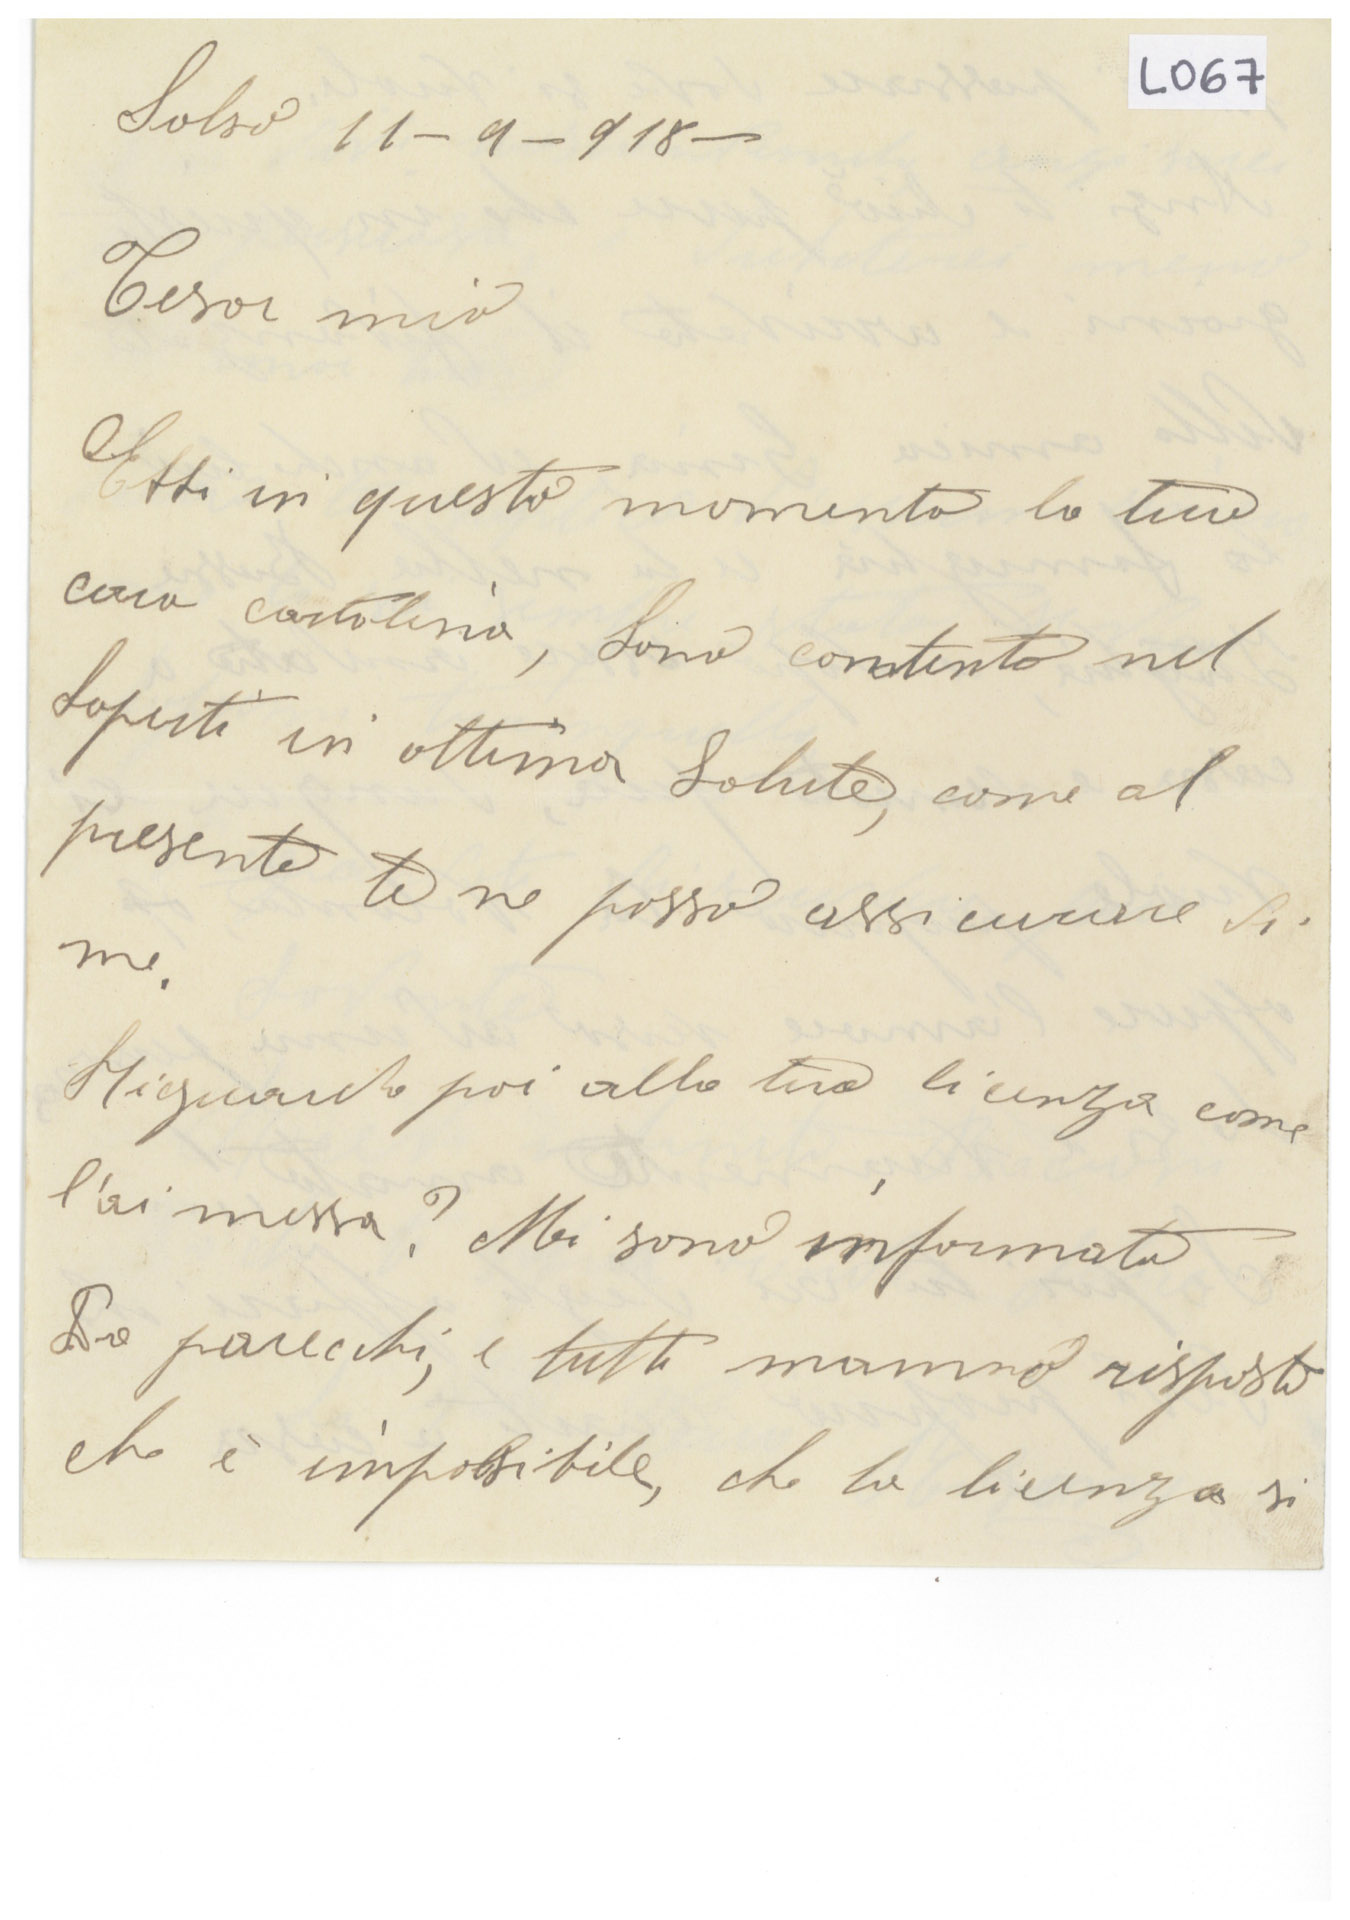 L067
Salsò 11-9-918-
Tesor mio
Ebbi in questo momento la tua
cara cartolina, Sono contenta nel
Saperti in ottima Salute, come al
presente te ne posso assicurare di
me.
Riguardo poi alla tua licenza come
l'ai messa? Mi sono informata
Da parecchi, e tutti mannò risposto
che è impossibile, che la licenza si